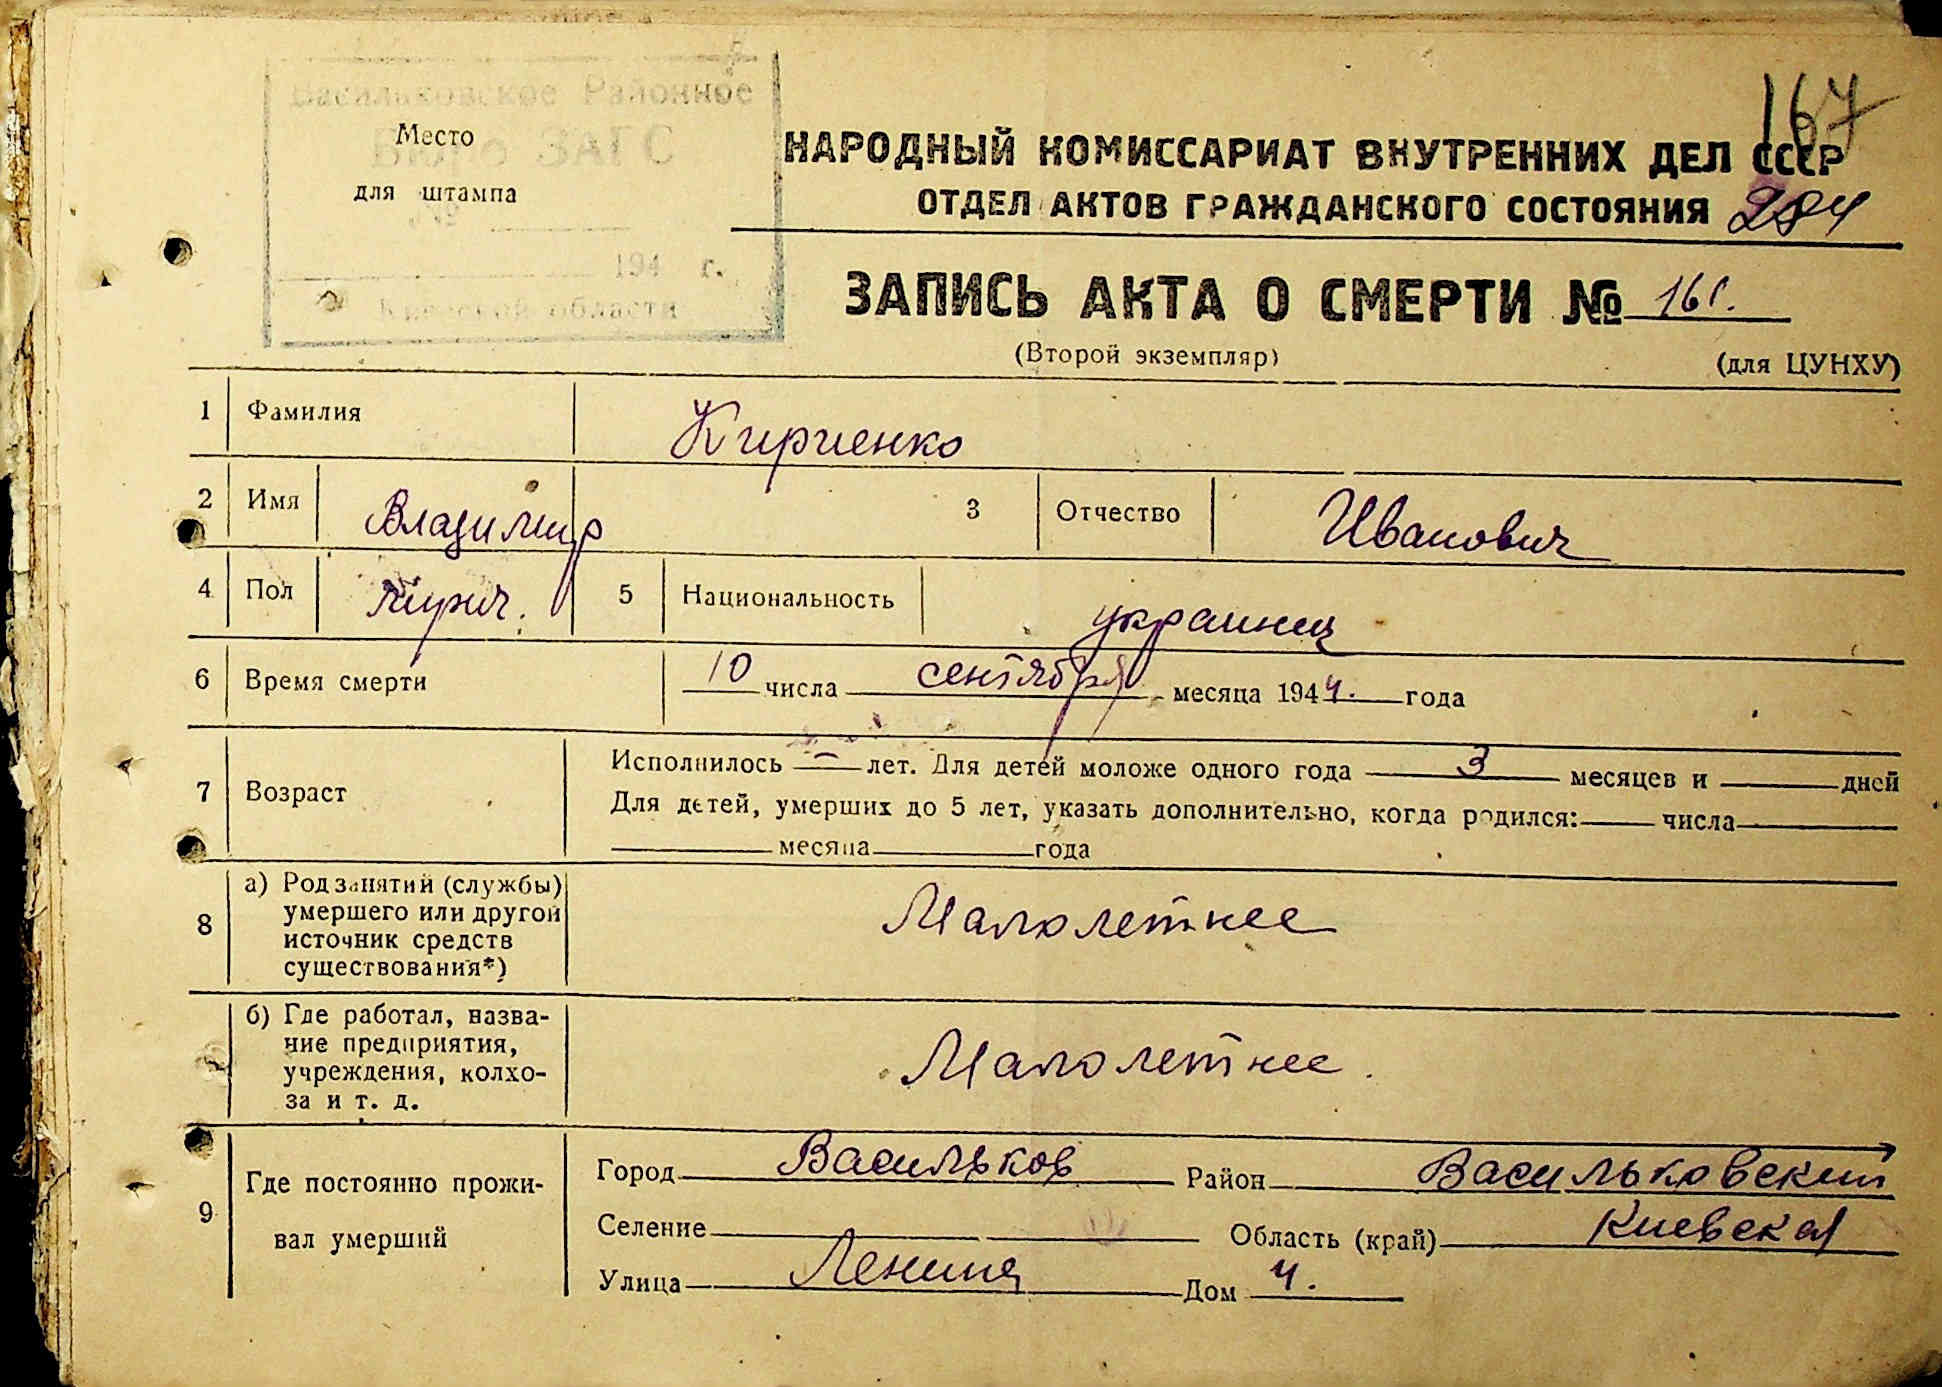 167
Васильковское Районное
Бюро ЗАГС
Место
для штампа
№
194 г.
Киевской области
НАРОДНЫЙ КОМИССАРИАТ ВНУТРЕННИХ ДЕЛ СССР
ОТДЕЛ АКТОВ ГРАЖДАНСКОГО СОСТОЯНИЯ 284
ЗАПИСЬ АКТА О СМЕРТИ №
(Второй экземпляр) (для ЦУНХУ)
1 Фамилия Кириенко
2 Имя Владимир 3 Отчество Иванович
4 Пол мужч. 5 Национальность украинец
6 Время смерти 10 числа сентября месяца 1944. года
7 Возраст
Исполнилось — лет. Для детей моложе одного года 3 месяцев и дней
Для детей, умерших до 5 лет, указать дополнительно, когда родился: числа
месяца года
8
а) Род занятий (службы)
умершего или другой
источник средств
существования*)
Малолетнее
б) Где работал, назва-
ние предприятия,
учреждения, колхо-
за и т. д.
Малолетнее.
9
Где постоянно прожи-
вал умерший
Город Васильков Район Васильковский
Селение Область (край) Киевская
Улица Ленина Дом 4.